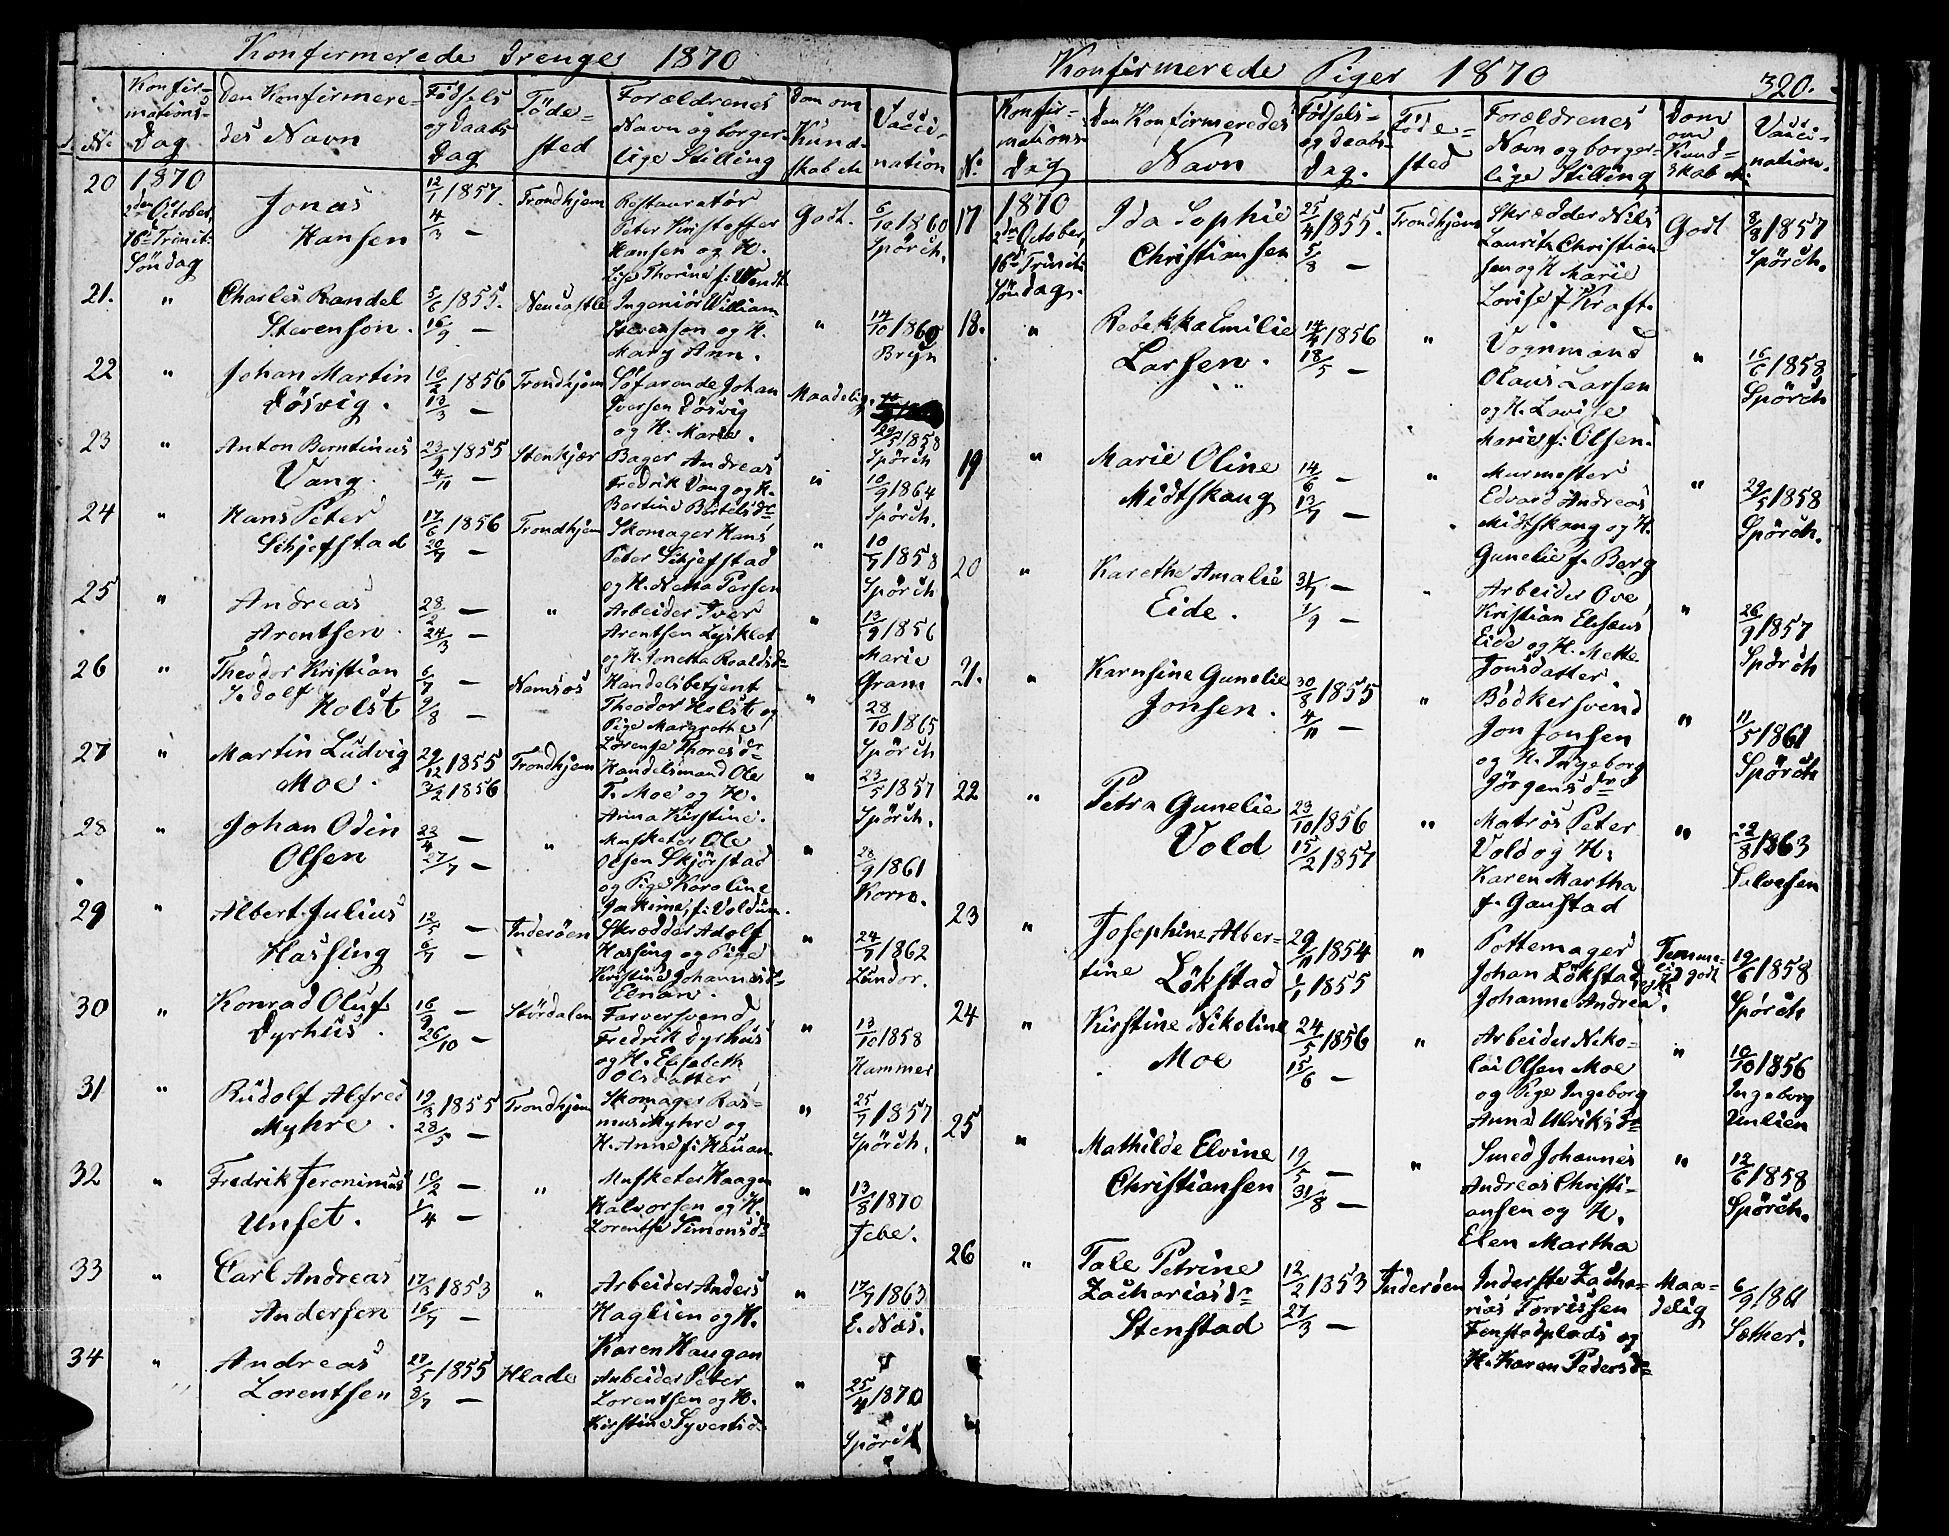 Konfirmerede Drenge 1870
No
Konfir-
mations-
Dag
Den Konfirmere-
des Navn
Födsels
og Daabs
Dag
Föde-
sted
Forældrenes
Navn og borger-
lige Stilling
Dom om
Kund-
skab etc
Vacci-
nation
20
1870
2den October,
16de Trinit:
Söndag
Jonas
Hansen
12/1 1857.
4/3 —
Trondhjem
Restauratör
Peter Kristoffer
Hansen og H.
Lise Thorine f: Wendt
Godt.
6/10 1860
Spörck.
21.
"
Charles Randel
Stevenson.
5/6 1855.
16/9 —
Neucastle
Ingeniör William
Stevenson og H.
Mary Ann.
"
14/10 1860
Bryn
22
"
Johan Martin
Dösvig.
10/2 1856
13/3 —
Trondhjem
Söfarende Johan
Iversen Dösvig
og H. Marie.
Maadelig.
29/5 1858
Spörck
23
"
Anton Berntinus
Vang.
23/9 1855
4/11 —
Stenkjær
Bager Andreas
Fredrik Vang og H.
Bertine Bertelsdr
"
10/9 1864
Spörck.
24
"
Hans Peter
Schjefstad
17/6 1856
20/7 —
Trondhjem
Skomager Hans
Peter Schjefstad
og H. Netta Persen
"
10/7 1858
Spörck
25
"
Andreas
Arentsen.
28/2 —
24/3 —
"
Arbeider Iver
Arentsen Lysklet
og H. Jonetta Roaldsdr
"
13/9 1856
Marie
Gram
26
"
Theodor Kristian
Jndolf Holst
6/7 —
9/8 —
Namsos
Handelsbetjent
Theodor Holst og
Pige Margrethe
Lorense Thoresdr
"
28/10 1865
Spörck
27
"
Martin Ludvig
Moe.
29/12 1855
3/2 1856
Trondhjem
Handelsmand Ole
T. Moe og H.
Anna Kirstine.
"
23/5 1857
Spörck.
28
"
Johan Odin
Olsen
23/4 —
27/7 —
"
Musketer Ole
Olsen Skjörstad
og Pige Karoline
Joakime, f: Voldum.
"
28/9 1861
Korn.
29
"
Albert Julius
Hassing
12/5 —
6/7 —
Inderöen
Skrædder Adolf
Hassing og Pige
Kirstine Johannesdr
Elnan.
"
24/7 1862
Lundor.
30
"
Konrad Oluf
Dyrhus.
16/9 —
26/10 —
Stördalen
Farversvend
Fredrik Dyrhus
og H. Elisabeth
Olsdatter
"
13/10 1858
Hammer
31
"
Rudolf Alfred
Myhre.
19/3 1855
28/5 —
Trondhjem
Skomager Ras-
mus Myhre og
H. Anne f: Hauan.
"
25/7 1857
Spörck.
32
"
Fredrik Jeronimus
Unset.
10/2 —
1/4 —
"
Musketer Haagen
Halvorsen og H.
Lorentse Simonsdr
"
13/8 1870
Jebe.
33
"
Carl Andreas
Andersen
17/3 1853
16/7 —
"
Arbeider Anders
Haglien og H.
Karen Haugan
"
17/7 1863
E. Næs.
34
"
Andreas
Lorentsen
27/5 1855
8/7 —
Hlade
Arbeider Peter
Lorentsen og H.
Kirstine Syvertsd
"
25/4 1870
Spörck
Konfirmerede Piger 1870
320.
No
Konfir-
mations
Dag
Den Konfirmeredes
Navn
Födsels-
og Daabs-
Dag.
Föde-
sted
Forældrenes
Navn og borger-
lige Stilling
Dom
om
Kund-
skab etc.
Vacci-
nation.
17
1870
2den October,
16de Trinit:
Söndag.
Ida Sophie
Christiansen
25/4 1855.
5/8 —
Trondhjem
Skrædder Nils
Lauritz Christian-
sen og H. Marie
Lovise f. Kraft.
Godt
8/8 1857
Spörck.
18.
"
Rebekka Emilie
Larsen.
14/4 1856
18/5 —
"
Vognmand
Olaus Larsen
og H. Lovise
Marie f: Olsen.
"
16/6 1858
Spörck
19
"
Marie Oline
Midtskaug
14/6 —
13/7 —
"
Murmester
Edvard Andreas
Midtskaug og H.
Gunelie f. Berg
"
29/5 1858
Spörck.
20
"
Karethe Amalie
Eide.
31/7 —
1/9 —
"
Arbeider Ove
Kristian Elesæus
Eide og H. Mette
Jonsdatter.
"
26/9 1857
Spörck
21.
"
Karnsine Gunelie
Jonsen.
30/8 1855
4/11 —
"
Bödkersvend
Jon Jonsen
og H. Ingeborg
Jörgensdr
"
11/5 1861
Spörck
22
"
Petra Gunelie
Vold
23/10 1856
15/2 1857
"
Matros Peter
Vold og H.
Karen Martha
f. Ganstad
"
22/8 1863
Salvesen
23
"
Josephine Alber-
tine Lökstad
29/11 1854
1/1 1855
"
Pottemager
Johan Lökstad
Johanne Andrea.
Temme-
lig godt
19/6 1858
Spörck
24
"
Kirstine Nikoline
Moe
24/5 1856
15/6 —
"
Arbeider Niko-
lai Olsen Moe
og Pige Ingeborg
Anna Ulriksdr
"
10/10 1856
Ingeborg
Unlien
25
"
Mathilde Elvine
Christiansen
19/5 —
31/8 —
"
Smed Johannes
Andreas Christi-
ansen og H.
Elen Martha
"
12/6 1858
Spörck.
26
"
Tale Petrine
Zachariasdr
Stenstad
12/2 1853
27/3 —
Inderöen
Inderste Zacha-
rias Torrissen
Fenstadplads og
H. Karen Pedersdr
Maa-
delig
6/9 1861
Sæther.